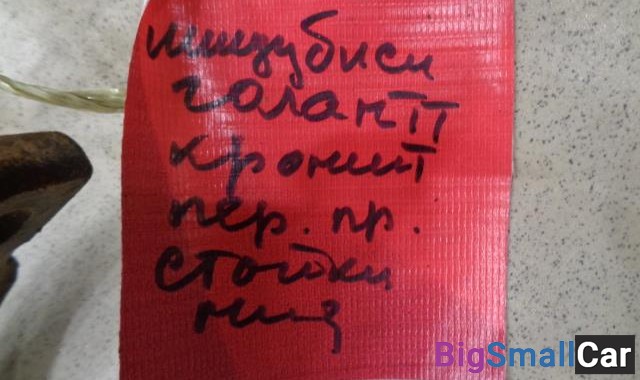 мицубиси
галант
кроншт
пер. пр.
стойки
низ
BigSmallCar